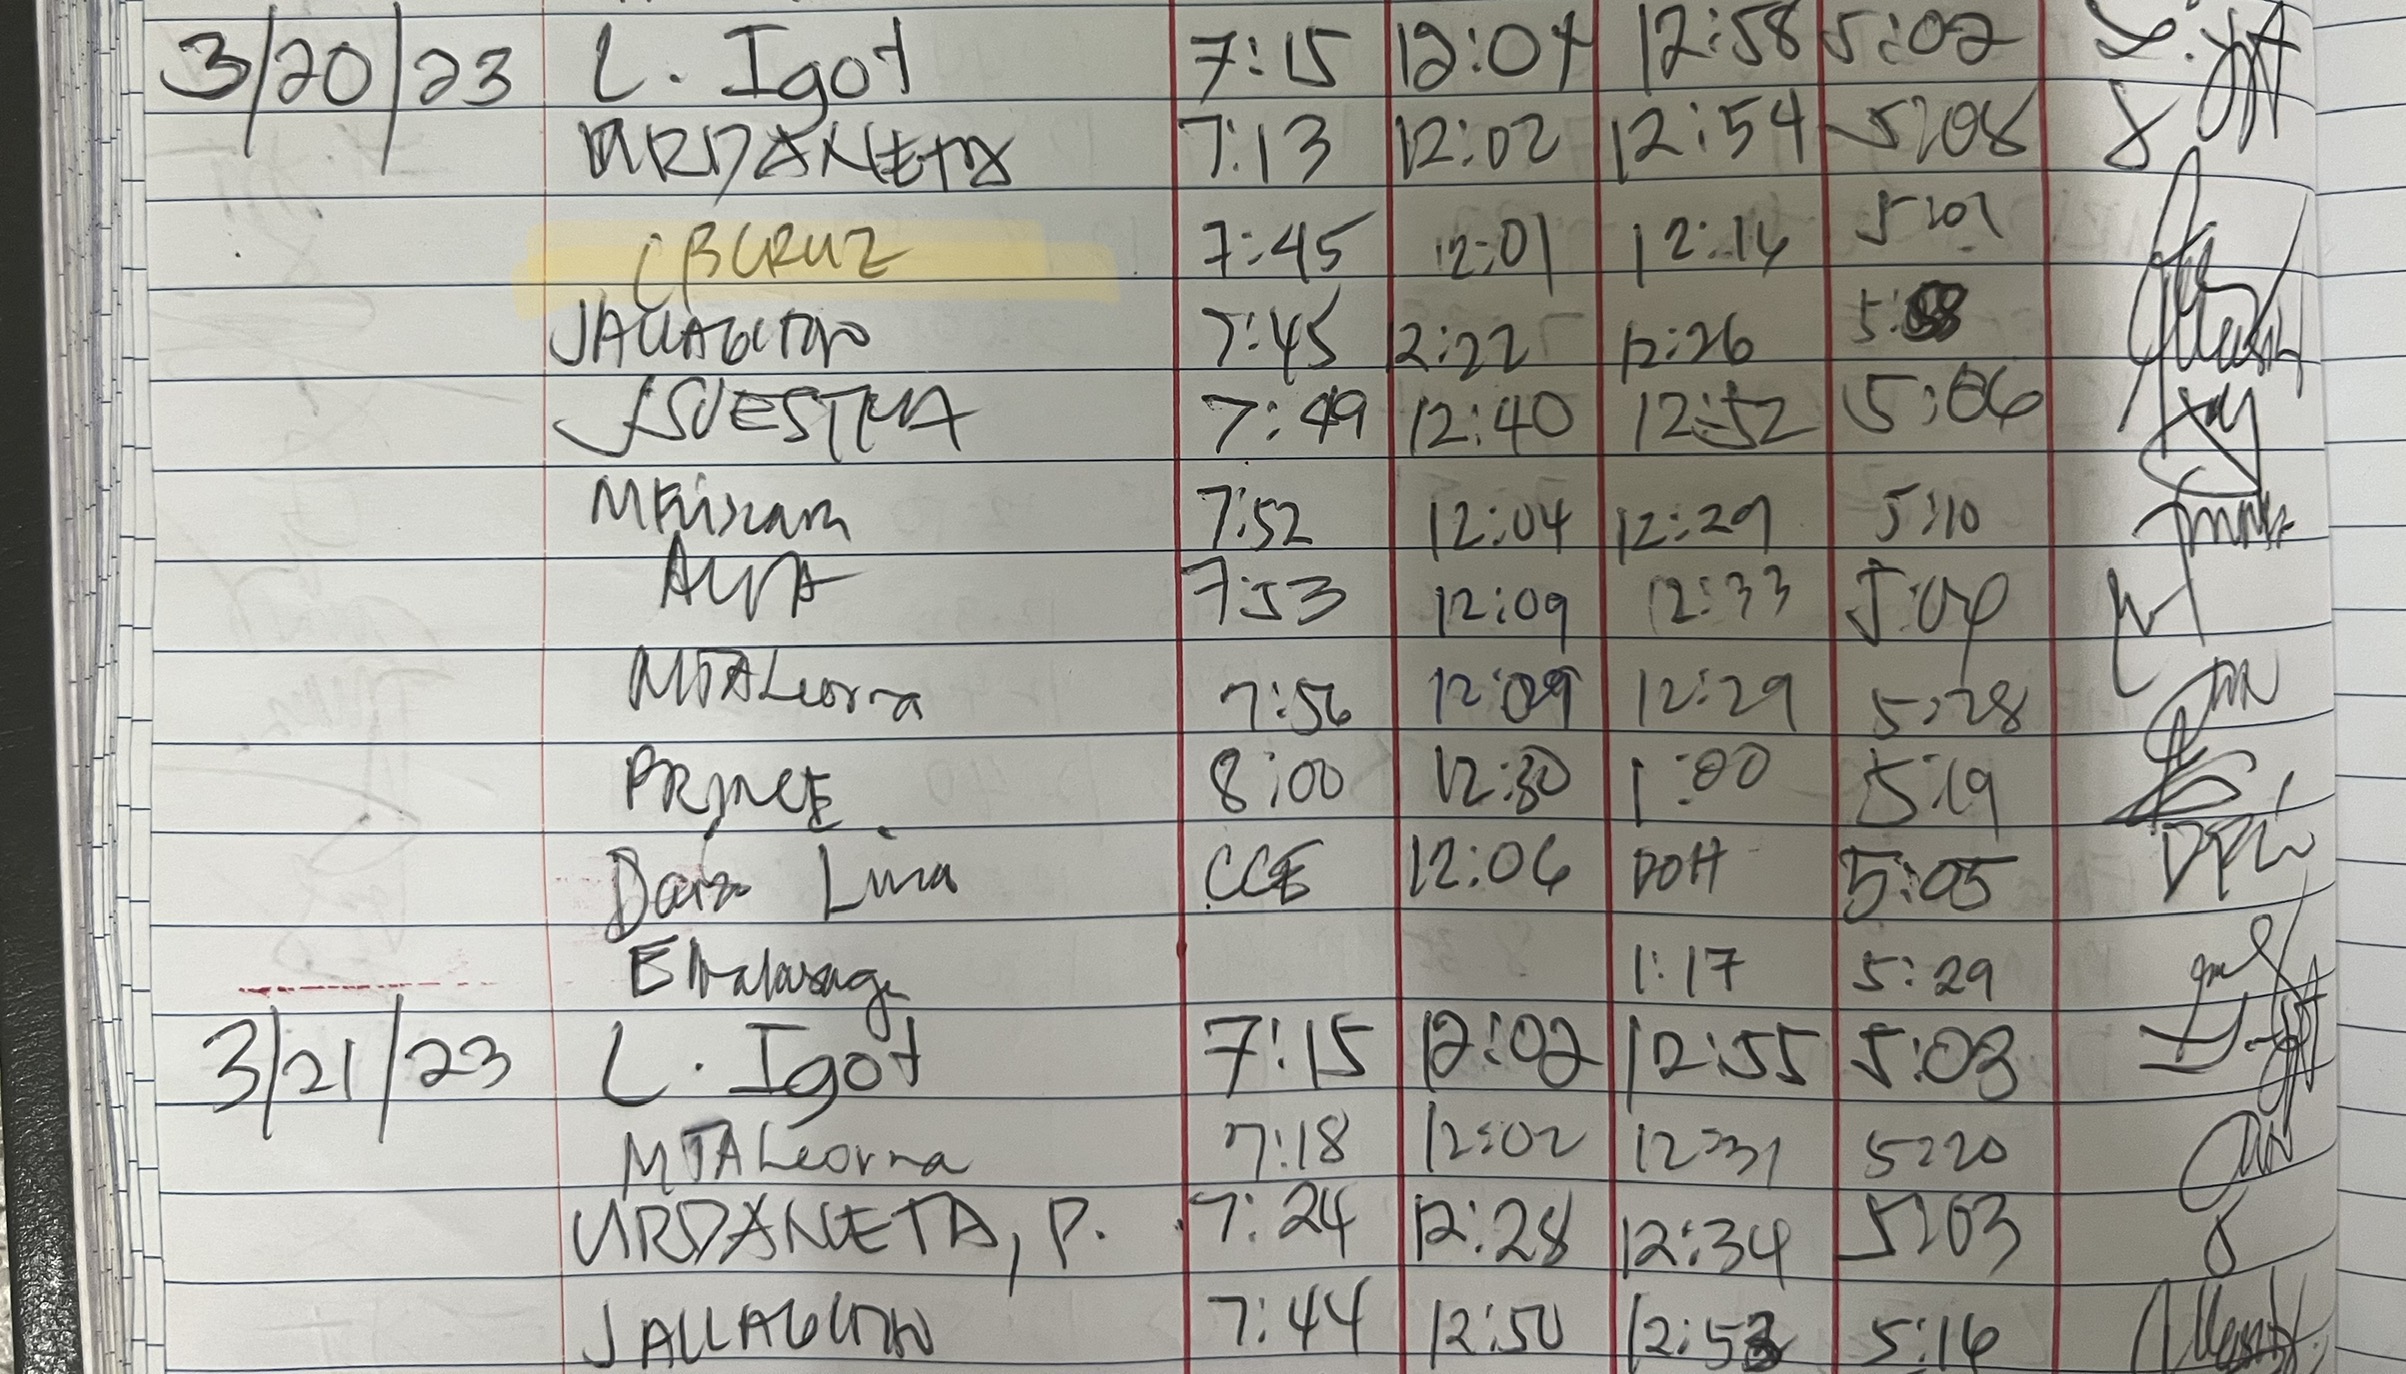 3/20/23 L. Igot 7:15 12:04 12:58 5:02
URDANETA 7:13 12:02 12:54 5:08
CBCRUZ 7:45 12:01 12:14 5:01
7:45 12:22 12:26
7:49 12:40 12:52 5:06
7:52 12:04 12:29 5:10
7:53 12:09 12:33 5:04
MTALeorna 7:56 12:09 12:29 5:28
PRINCE 8:00 12:30 1:00 5:19
Lina CCE 12:06 DOH 5:05
1:17 5:29
3/21/23 L. Igot 7:15 12:02 12:55 5:03
MTALeorna 7:18 12:02 12:31 5:20
URDANETA, P. 7:24 12:28 12:34 5:03
7:44 12:50 12:53 5:16